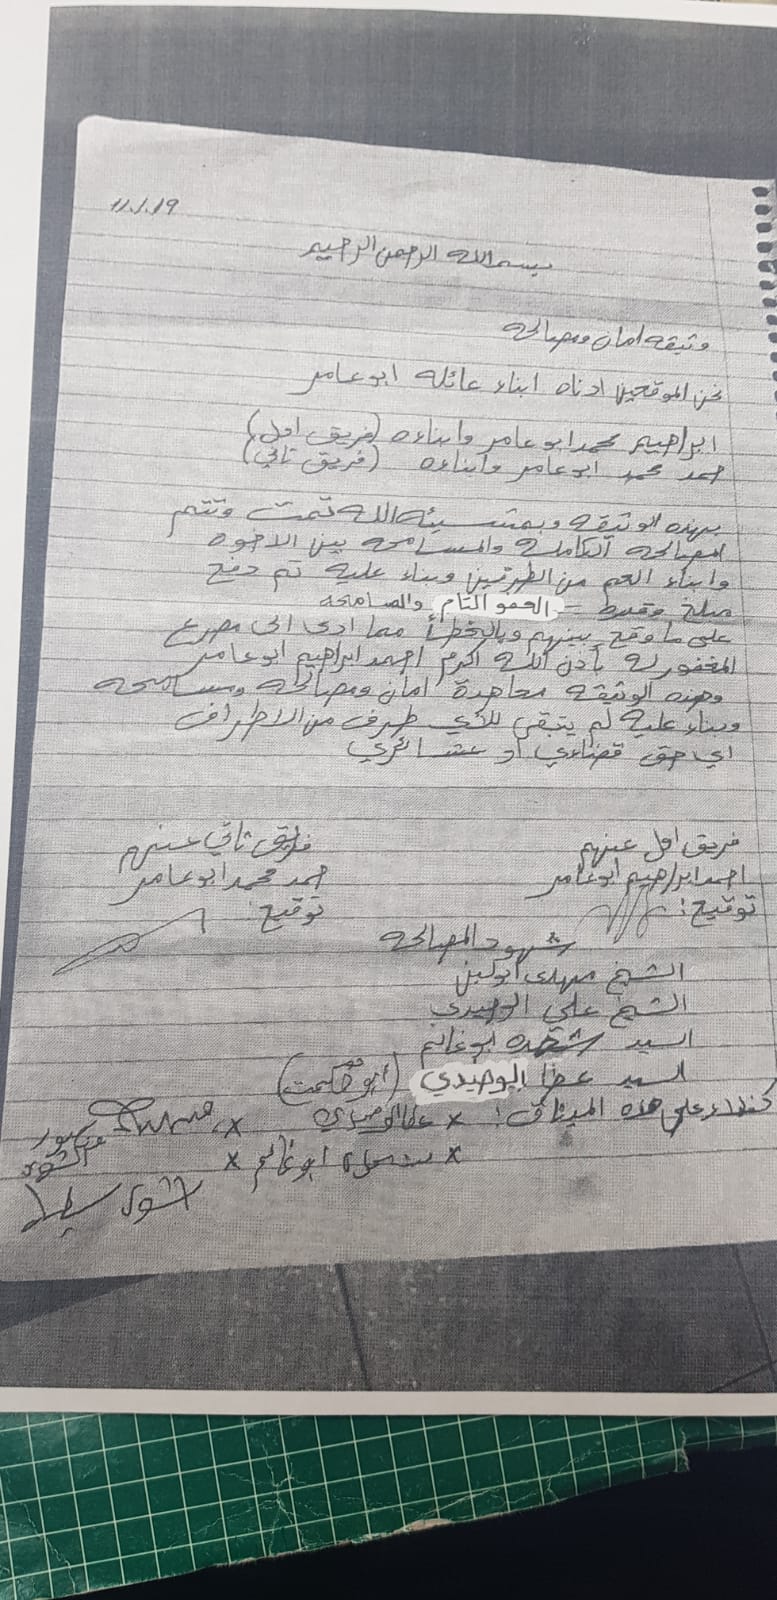 11.1.19
بسم الله الرحمن الرحيم
وثيقه امان ومصالحه
نحن الموقعين ادناه ابناء عائله ابو عامر
ابراهيم محمد ابو عامر وابناءه (فريق اول)
حمد محمد ابو عامر وابناءه (فريق تاني)
بهذه الوثيقه وبمشيئه الله تمت وتتم
المصالحه الكامله والمسامحه بين الاخوه
وابناء العم من الطرفين وبناء عليه تم دفع
مبلغ وقدره = العفو التام والمسامحه
على ما وقع بينهم وبالخطأ مما ادى الى مصرع
المغفور له بأذن الله اكرم احمد ابراهيم ابو عامر
وهذه الوثيقه معاهدة امان ومصالحه ومسامحه
وبناء عليه لم يتبقى للأي طرف من الاطراف
اي حق قضاءي او عشائري
فريق اول عنهم
احمد ابراهيم ابو عامر
توقيع:
فريق تاني عنهم
حمد محمد ابو عامر
توقيع:
شهود المصالحه
الشيخ مهدي ابو
الشيخ علي الوحيدي
السيد شحده ابو غانم
السيد عطا الوحيدي (أبو حكمت)
على هذه الميثاق: x عطا الوحيدي x
x ابو غانم x